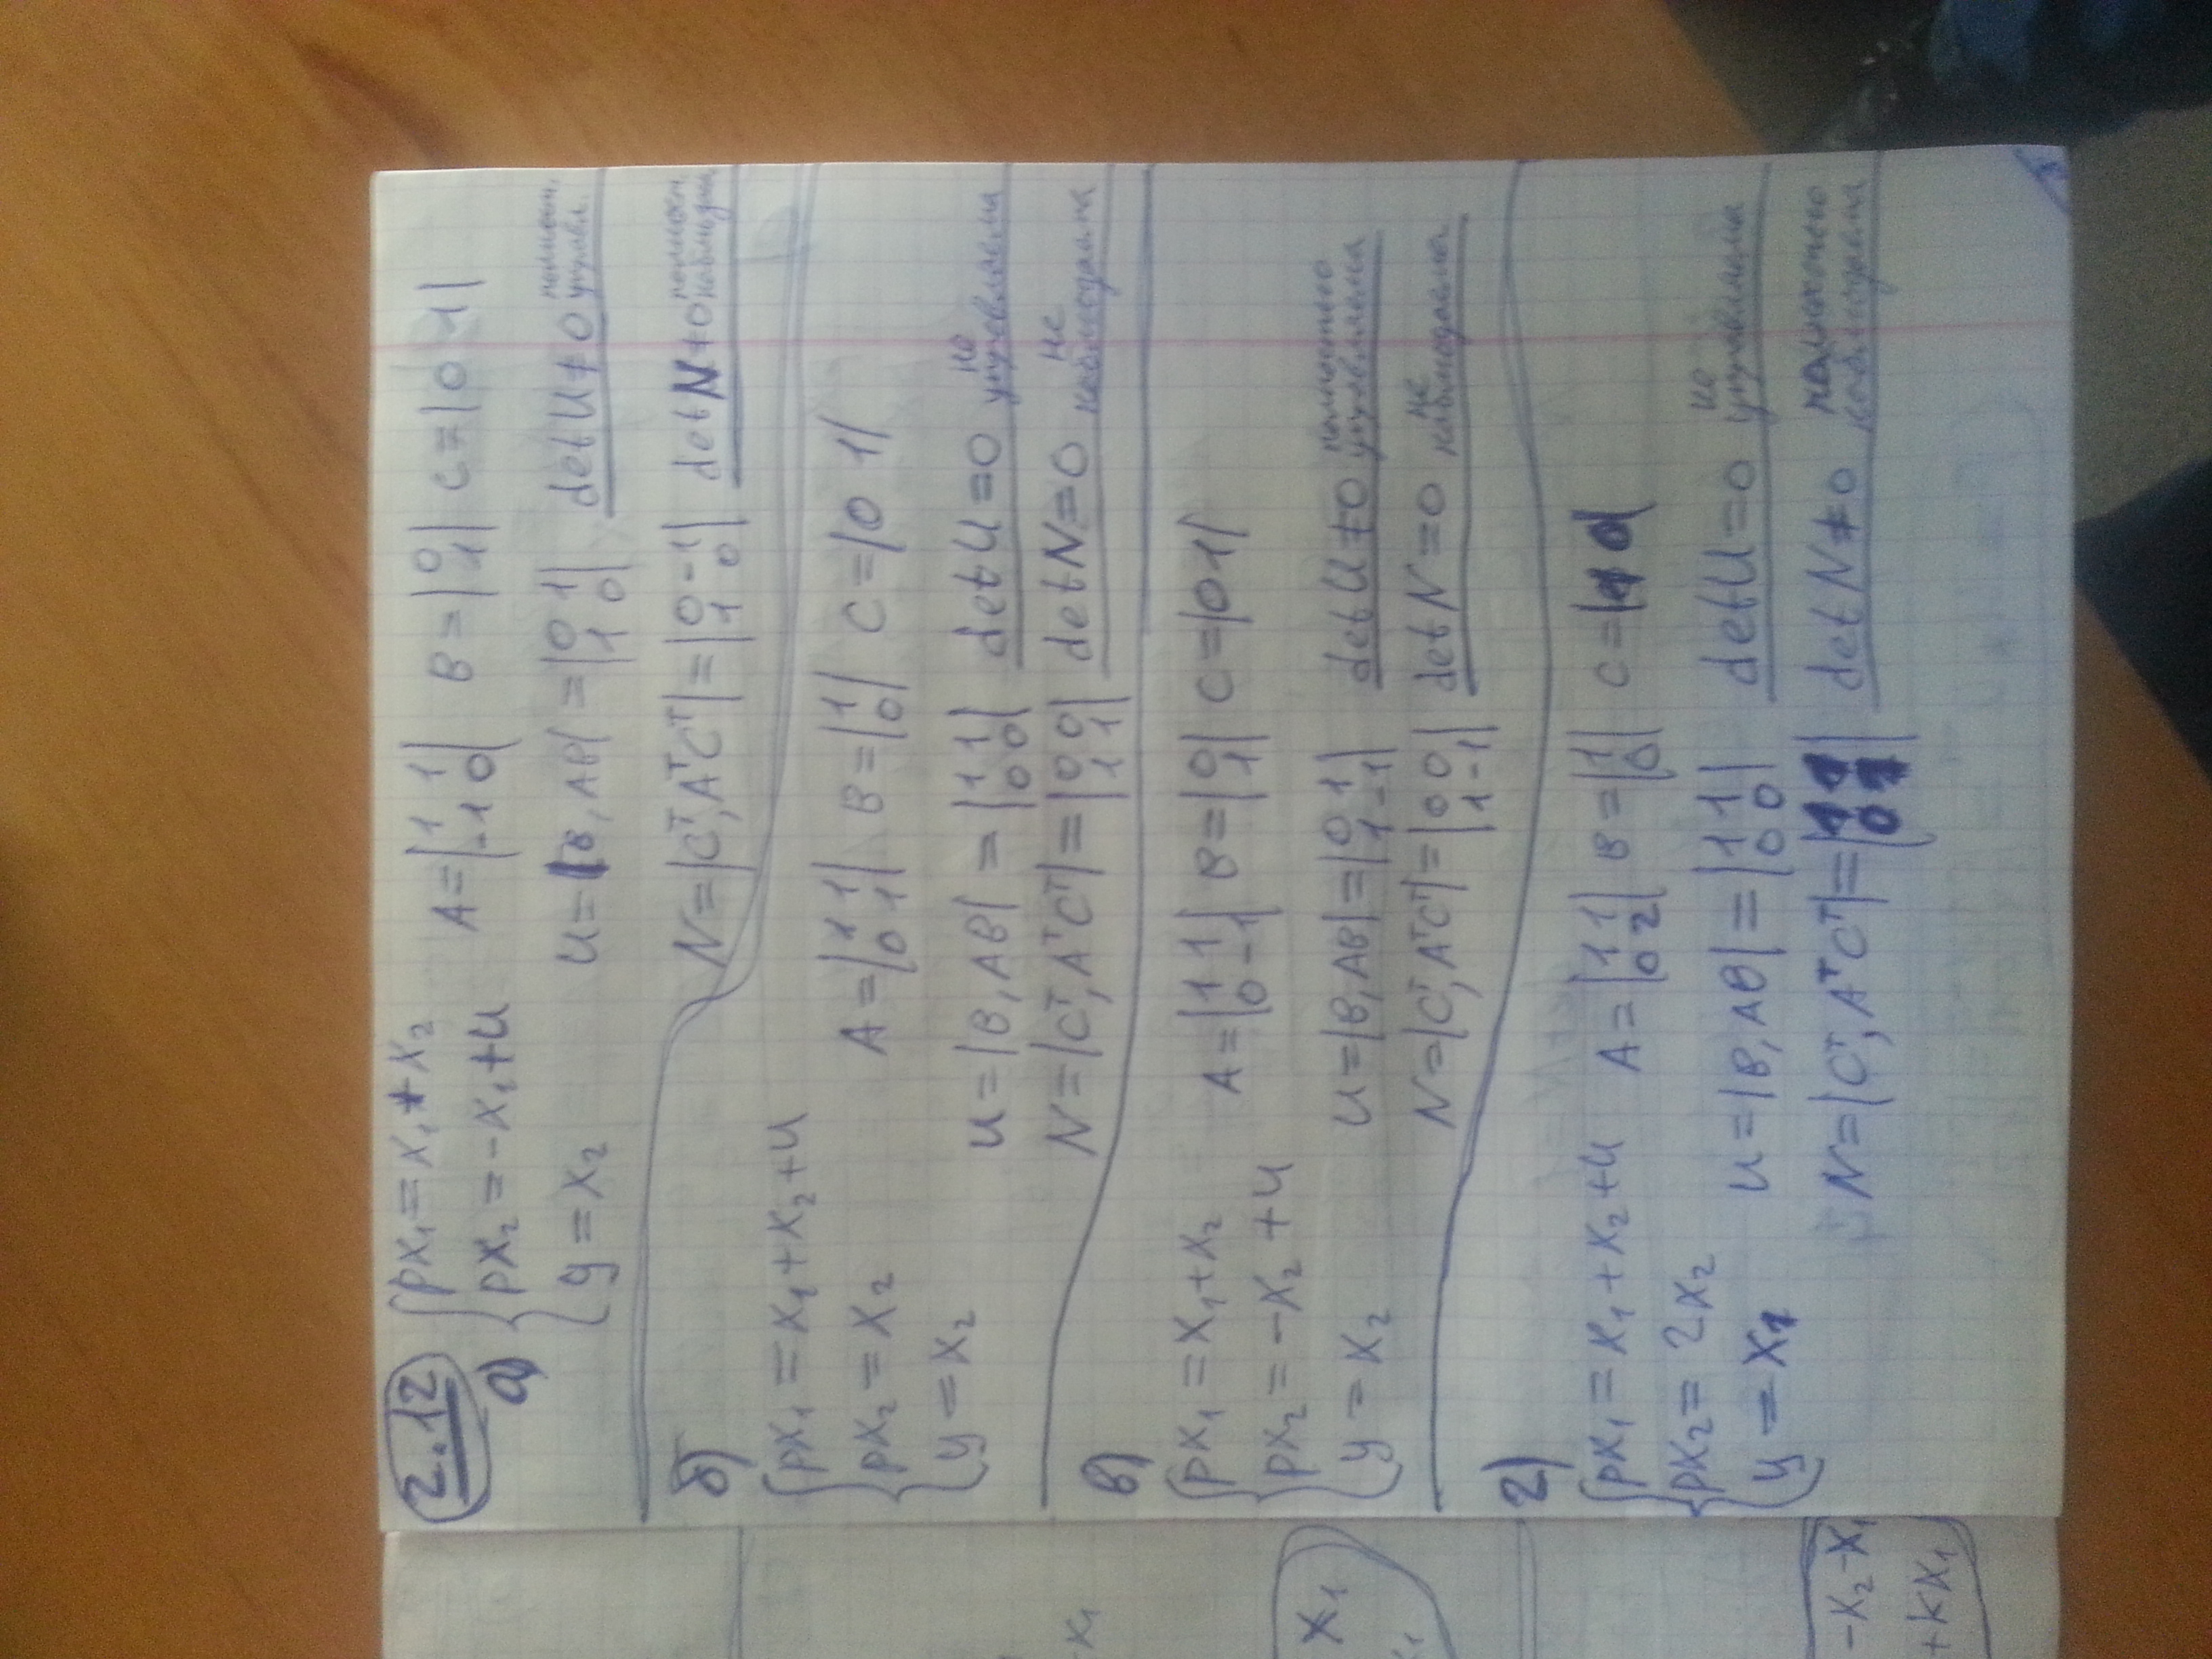 2.12
а) px₁ = x₁ + x₂
px₂ = -x₁ + u
y = x₂
A = |1 1; -1 0| B = |0; 1| C = |0 1|
U = |B, AB| = |0 1; 1 0| det U ≠ 0 полност. управл.
N = |Cᵀ, AᵀCᵀ| = |0 -1; 1 0| det N ≠ 0 полност. наблюдаем
б)
px₁ = x₁ + x₂ + u
px₂ = x₂
y = x₂
A = |1 1; 0 1| B = |1; 0| C = |0 1|
U = |B, AB| = |1 1; 0 0| det U = 0 не управляема
N = |Cᵀ, AᵀCᵀ| = |0 0; 1 1| det N = 0 не наблюдаема
в)
px₁ = x₁ + x₂
px₂ = -x₂ + u
y = x₂
A = |1 1; 0 -1| B = |0; 1| C = |0 1|
U = |B, AB| = |0 1; 1 -1| det U ≠ 0 полностью управляема
N = |Cᵀ, AᵀCᵀ| = |0 0; 1 -1| det N = 0 не наблюдаема
г)
px₁ = x₁ + x₂ + u
px₂ = 2x₂
y = x₁
A = |1 1; 0 2| B = |1; 0| C = |1 0|
U = |B, AB| = |1 1; 0 0| det U = 0 не управляема
N = |Cᵀ, AᵀCᵀ| = |1 1; 0 1| det N ≠ 0 полностью наблюдаема
-x₁
x₁
-x₂-x₁
+kx₁